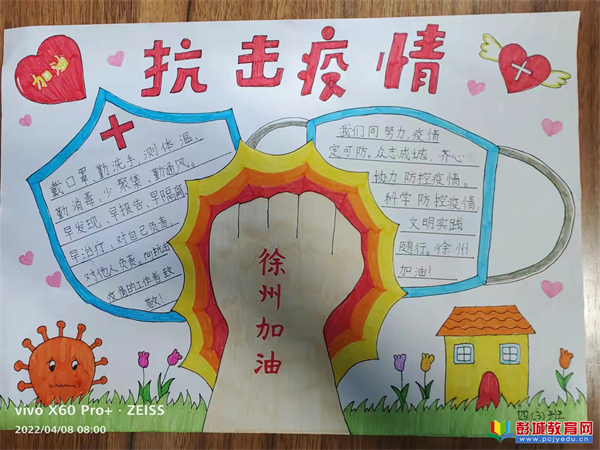 抗击疫情
加油
戴口罩,勤洗手,测体温、
勤消毒,少聚集、勤通风。
早发现,早报告,早隔离、
早治疗,对自己负责、
对他人负责。向抗击
疫情的工作者致
敬!
我们同努力,疫情
定可防。众志成城,齐心
协力防控疫情。
科学防控疫情,
文明实践
随行。徐州
加油!
徐州加油
四(3)班
vivo X60 Pro+ · ZEISS
2022/04/08 08:00
彭城教育网
www.pcjyedu.cn